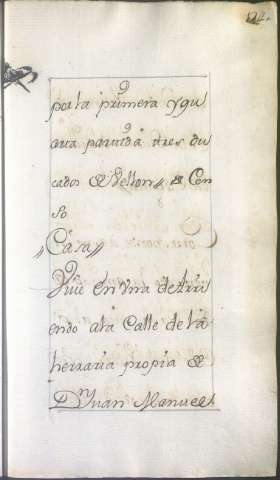 por la primera ygu
ara partida tres du
cados de Vellon, de Con
so
"Casa"
Viue en vna de Arri
endo a la Calle de la
herraria propia de
Dn Juan Manuel